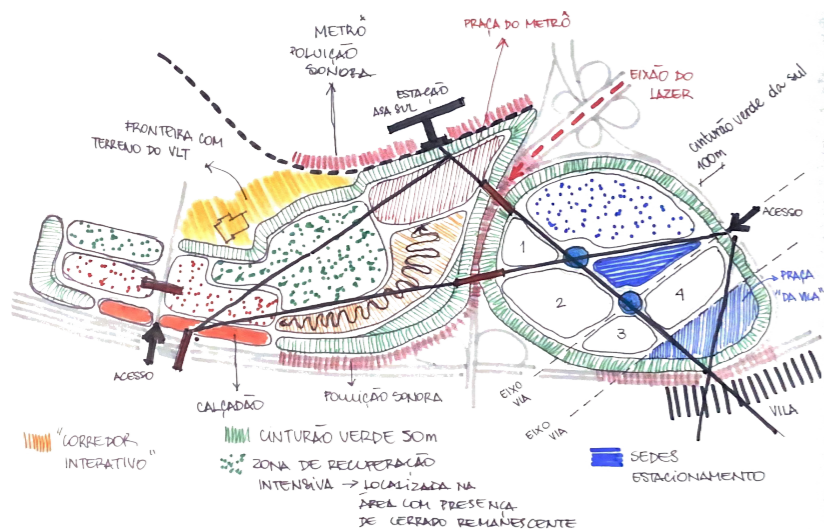 METRÔ
POLUIÇÃO
SONORA
PRAÇA DO METRÔ
ESTAÇÃO
ASA SUL
EIXÃO DO
LAZER
CINTURÃO VERDE da sul
100m
FRONTEIRA COM
TERRENO DO VLT
ACESSO
1
2
3
4
PRAÇA
"DA VILA"
ACESSO
CALÇADÃO
POLUIÇÃO SONORA
EIXO
VIA
EIXO
VIA
VILA
"CORREDOR
INTERATIVO"
CINTURÃO VERDE 50m
ZONA DE RECUPERAÇÃO
INTENSIVA → LOCALIZADA NA
ÁREA COM PRESENÇA
DE CERRADO REMANESCENTE
SEDES
ESTACIONAMENTO